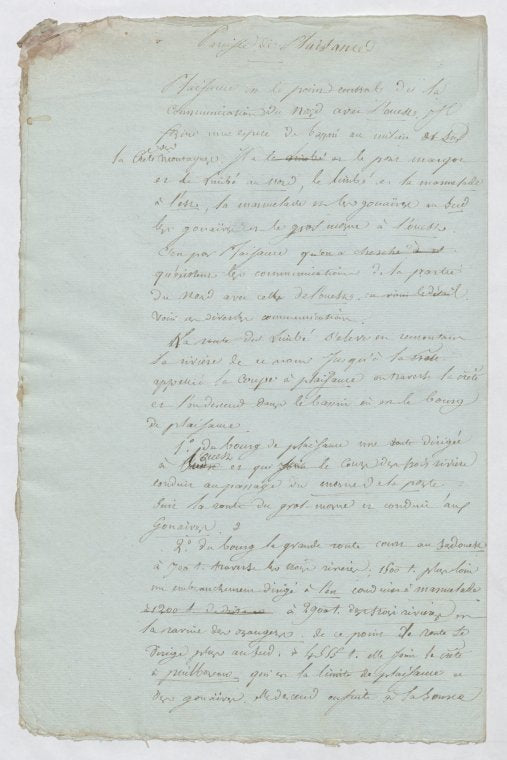 Paroisse de Plaisance
Plaisance est le point central de la
communication du Nord avec l'ouest, il
forme une espece de bassin au milieu des
la crête montagnes. Il a le limbé et le port margot
et le limbé au nord, le limbé et la marmelade
à l'est, la marmelade et les gonaïves au sud
les gonaives et le gros morne à l'ouest.
C'en par Plaisance qu'on a cherché
les communication de la partie
du Nord avec celle de l'ouest, le détail
Voici les diverses communication
La route du Limbé s'eleve en remontant
la rivière de ce nom jusqu'à la crête
appellée la coupe à plaisance on traverse la crête
et l'on descend dans le bassin où est le bourg
de plaisance.
1.° du bourg de plaisance une route dirigée
à ouest et qui suit le cours des trois rivières
conduit au passage du morne de la porte
suit la route du gros morne et conduit aux
Gonaives.
2.° du bourg la grande route court au Sudouest
à 700 t. traverse les trois rivieres, 1500 t. plus loin
un embranchement dirigé à l'est conduit à marmelade
à 2900 t. des trois rivieres est
la ravine des orangers. de ce point la route se
dirige plus au Sud. à 4555 t. elle joint la crête
à puilboreau, qui est la limite de plaisance et
des gonaïves, elle descend ensuite à la source